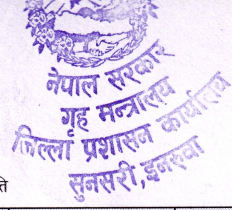 नेपाल सरकार
गृह मन्त्रालय
जिल्ला प्रशासन कार्यालय
सुनसरी, इनरुवा
ति